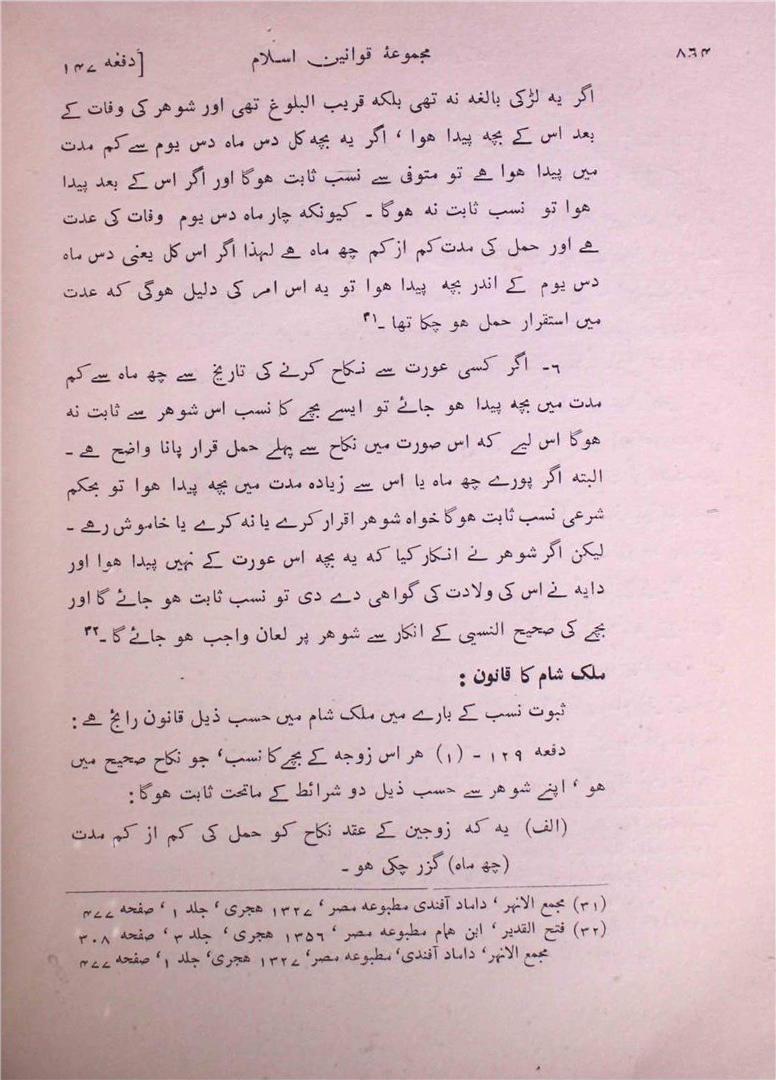 ۸۶۴ مجموعۂ قوانین اسلام [دفعه ۱۴۷
اگر یہ لڑکی بالغہ نہ تھی بلکہ قریب البلوغ تھی اور شوهر کی وفات کے
بعد اس کے بچہ پیدا هوا ، اگر یہ بچہ کل دس ماہ دس یوم سے کم مدت
میں پیدا هوا ہے تو متوفی سے نسب ثابت هوگا اور اگر اس کے بعد پیدا
هوا تو نسب ثابت نہ هوگا ۔ کیونکہ چار ماہ دس یوم وفات کی عدت
ہے اور حمل کی مدت کم از کم چھ ماہ ہے لہذا اگر اس کل یعنی دس ماہ
دس یوم کے اندر بچہ پیدا هوا تو یہ اس امر کی دلیل هوگی کہ عدت
میں استقرار حمل هو چکا تھا ۔۳۱
۶۔ اگر کسی عورت سے نکاح کرنے کی تاریخ سے چھ ماہ سے کم
مدت میں بچہ پیدا هو جائے تو ایسے بچے کا نسب اس شوهر سے ثابت نہ
هوگا اس لیے کہ اس صورت میں نکاح سے پہلے حمل قرار پانا واضح ہے ۔
البتہ اگر پورے چھ ماہ یا اس سے زیادہ مدت میں بچہ پیدا هوا تو بحکم
شرعی نسب ثابت هوگا خواہ شوهر اقرار کرے یا نہ کرے یا خاموش رہے ۔
لیکن اگر شوهر نے انکار کیا کہ یہ بچہ اس عورت کے نہیں پیدا هوا اور
دایہ نے اس کی ولادت کی گواهی دے دی تو نسب ثابت هو جائے گا اور
بچے کی صحیح النسبی کے انکار سے شوهر پر لعان واجب هو جائے گا ۔۳۲
ملک شام کا قانون :
ثبوت نسب کے بارے میں ملک شام میں حسب ذیل قانون رائج ہے :
دفعہ ۱۲۹ - (۱) هر اس زوجہ کے بچے کا نسب، جو نکاح صحیح میں
هو ، اپنے شوهر سے حسب ذیل دو شرائط کے ماتحت ثابت هوگا :
(الف) یہ کہ زوجین کے عقد نکاح کو حمل کی کم از کم مدت
(چھ ماہ) گزر چکی هو ۔
(۳۱) مجمع الانہر ، داماد آفندی مطبوعہ مصر ، ۱۳۲۷ هجری ، جلد ۱ ، صفحہ ۴۷۷
(۳۲) فتح القدیر ، ابن همام مطبوعہ مصر ، ۱۳۵۶ هجری ، جلد ۳ ، صفحہ ۳۰۸
مجمع الانہر، داماد آفندی، مطبوعہ مصر، ۱۳۲۷ هجری، جلد ۱، صفحہ ۴۷۷